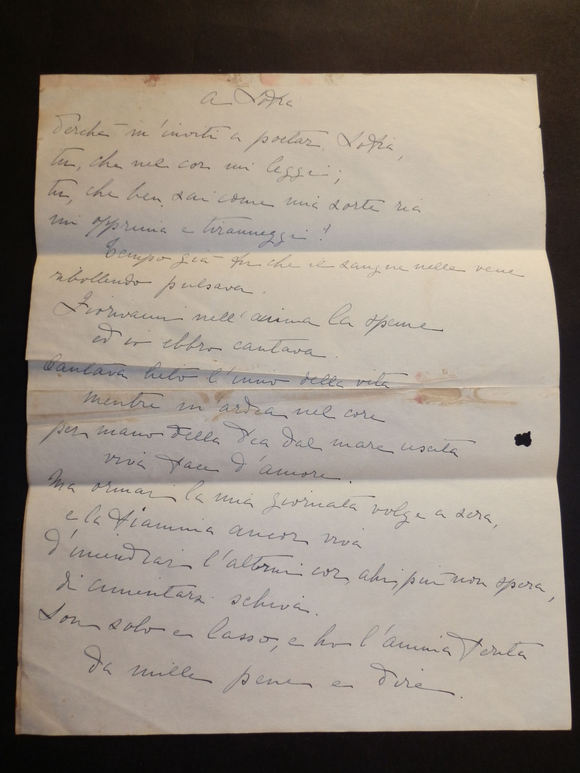 A Sofia
Perchè m'inviti a poetar, Sofia,
tu, che nel cor mi leggi;
tu, che ben sai come mia sorte ria
mi opprima e tiranneggi?
Tempo già fu che il sangue nelle vene
ribollendo pulsava.
Fiorivami nell'anima la spene
ed io ebbro cantava.
Cantava lieto l'inno della vita
mentre m'ardea nel core
per mano della Dea dal mare uscita
viva face d'amore.
Ma ormai la mia giornata volge a sera,
e la fiamma ancor viva
d'incendiar l'altrui cor, ahi, più non spera,
di cimentarsi schiva.
Son solo e lasso, e ho l'anima ferita
da mille pene e dire.